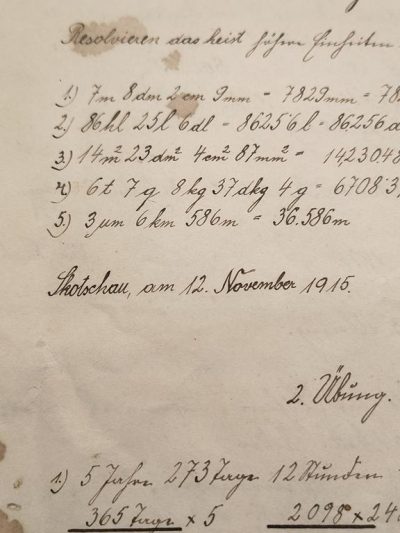 Resolvieren das heist höhere Einheiten
1.) 7m 8dm 2cm 9mm = 7829mm = 78
2.) 86hl 25l 6dl = 86256l = 86256d
3.) 14m² 23dm² 4cm² 87mm² = 1423048
4.) 6t 7q 8kg 37dkg 4g = 6708'37
5.) 3µm 6km 586m = 36.586m
Skotschau, am 12. November 1915.
2. Übung.
1.) 5 Jahre 273 Tage 12 Stunden
365 Tage × 5 2098 × 24